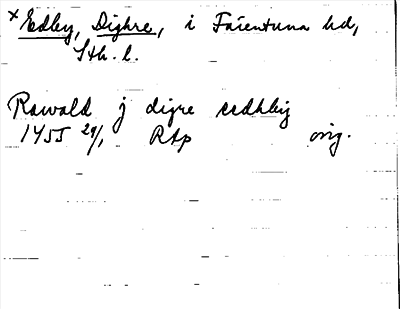 × Edeby, Dighre, i Färentuna hd,
Sth. l.
Rawald j digre eedhby
1455 29/1 RAp orig.